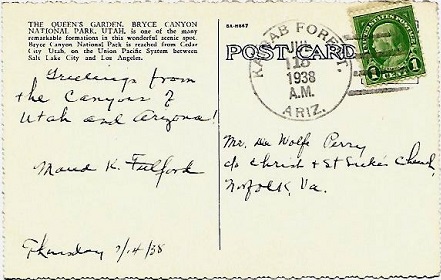 THE QUEEN'S GARDEN, BRYCE CANYON
NATIONAL PARK, UTAH, is one of the many
remarkable formations in this wonderful scenic spot.
Bryce Canyon National Park is reached from Cedar
City Utah, on the Union Pacific System between
Salt Lake City and Los Angeles.
Greetings from
the Canyons of
Utah and Arizona!
Maud K. Fulford
Thursday 7/14/38
5A-H647
POST CARD
KAIBAB FOREST
1938
A.M.
ARIZ.
UNITED STATES POSTAGE
1 CENT 1
Mr. De Wolfe Perry
c/o Christ & St Luke's Church,
Norfolk, Va.